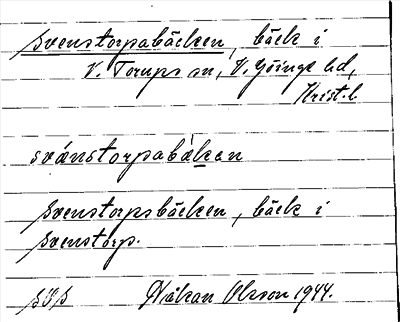 Svenstorpabäcken, bäck i
V. Torups sn, V. Göinge hd,
Krist. l.
svänstorpabäkan
Svenstorpsbäcken, bäck i
Svenstorp.
Håkan Olsson 1944.